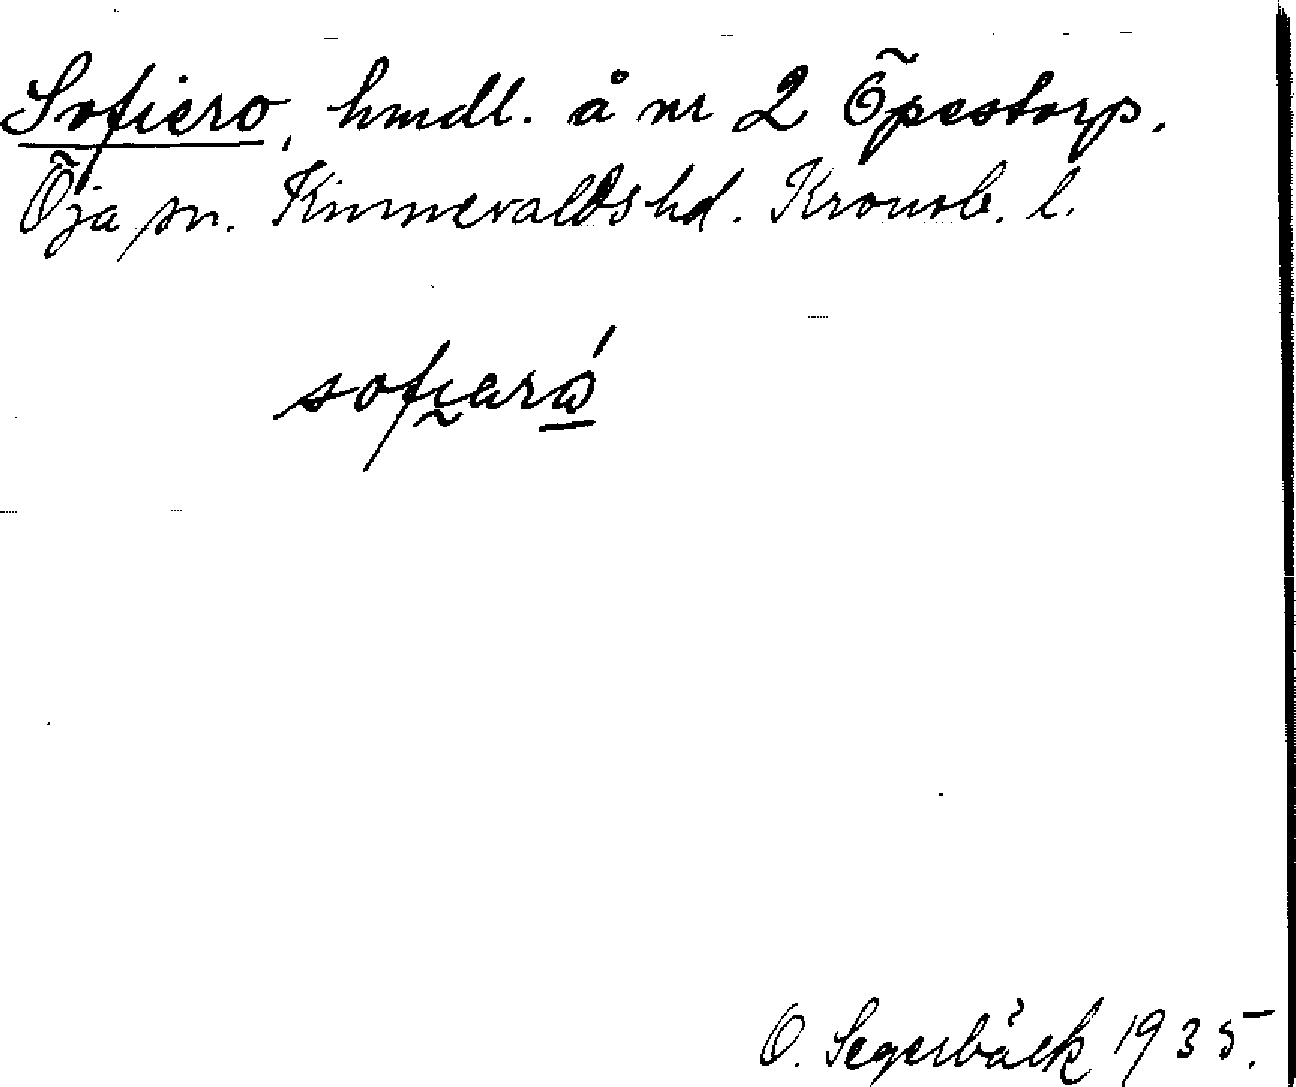 Sofiero, hmdl. å nr 2 Öpestorp.
Öja sn. Kinnevaldshd. Kronob. l.
sofiaró
O. Segerbäck 1935.